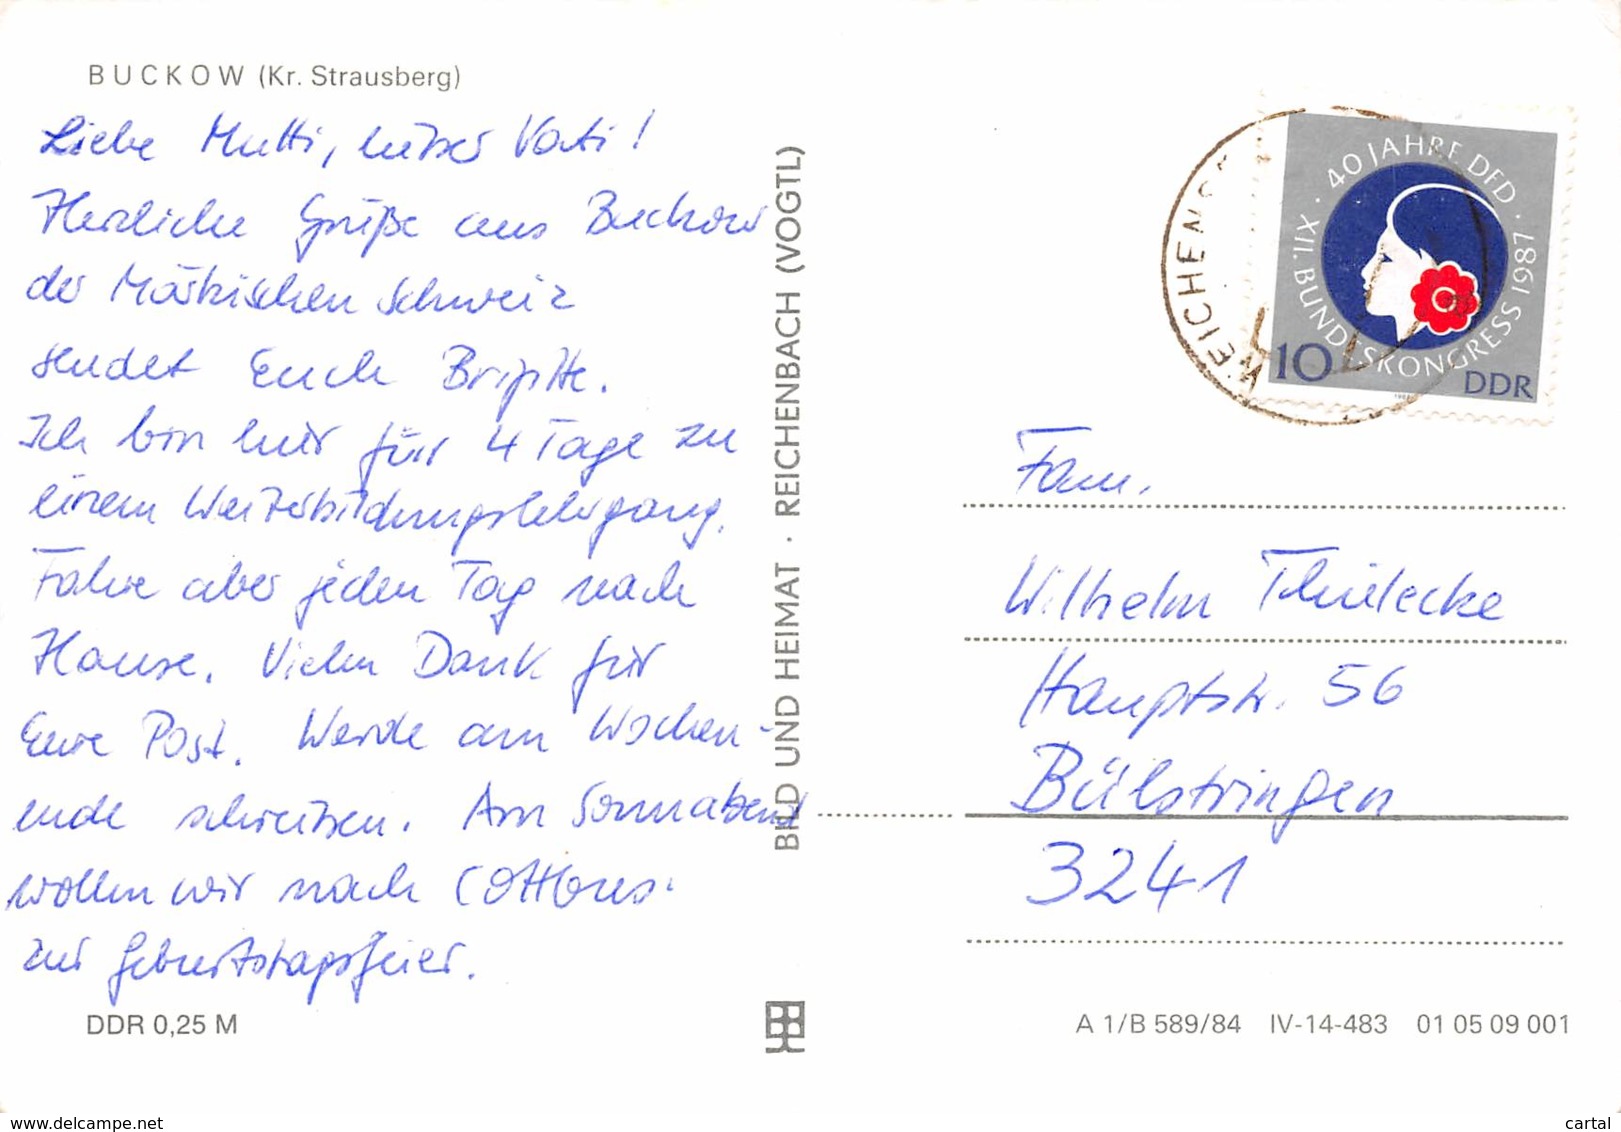 BUCKOW (Kr. Strausberg)
Liebe Mutti, lieber Vati!
Herzliche Grüße aus Buckow
der Märkischen Schweiz
sendet Euch Brigitte.
Ich bin hier für 4 Tage zu
einem Weiterbildungslehrgang.
Fahre aber jeden Tag nach
Hause. Vielen Dank für
Eure Post. Werde am Wochen-
ende schreiben. Am Sonnabend
wollen wir nach Cottbus
zur Geburtstagsfeier.
DDR 0,25 M
BILD UND HEIMAT · REICHENBACH (VOGTL)
40 JAHRE DFD · XII. BUNDESKONGRESS 1987 ·
10 DDR
Fam.
Wilhelm Thielecke
Hauptstr. 56
Bülstringen
3241
A 1/B 589/84 IV-14-483 01 05 09 001
www.delcampe.net
cartal